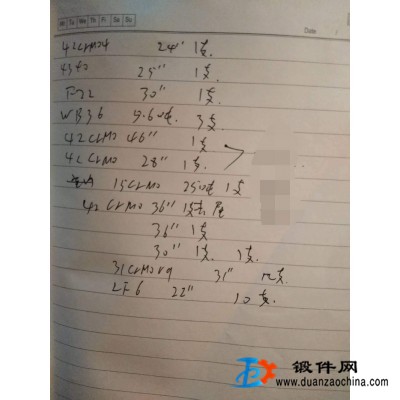 Mo Tu We Th Fr Sa Su
Date
42CrMo4 24" 1支.
4340 25" 1支
F22 30" 1支.
WB36 9.60吨. 3支
42CrMo 46" 1支
42CrMo 28" 1支.
15CrMo 250吨 1支
42CrMo 36" 1支去尾
36" 1支
30" 1支. 1支.
31CrMoV9 31" 12支.
LF6 22" 10支.
锻件网
www.duanzaochina.com